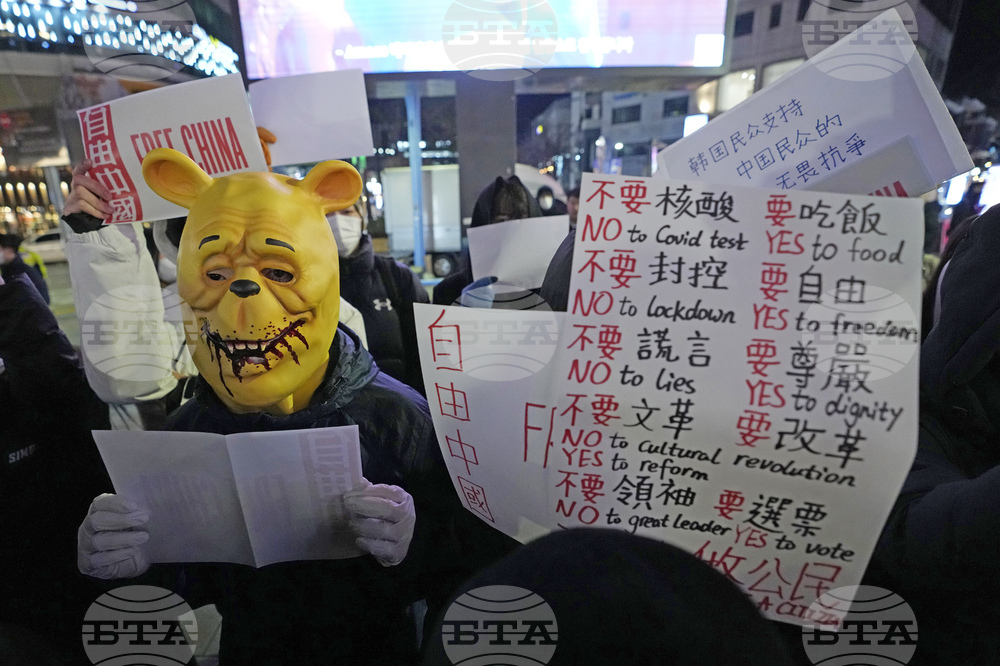 自由中
FREE CHINA
韩国民众支持
中国民众的
无畏抗争
自由中國
不要核酸 要吃飯
NO to Covid test YES to food
不要封控 要自由
NO to lockdown YES to freedom
不要謊言 要尊嚴
NO to lies YES to dignity
不要文革 要改革
NO to cultural revolution
YES to reform
不要領袖 要選票
NO to great leader YES to vote
做公民
A CITIZEN
БТА